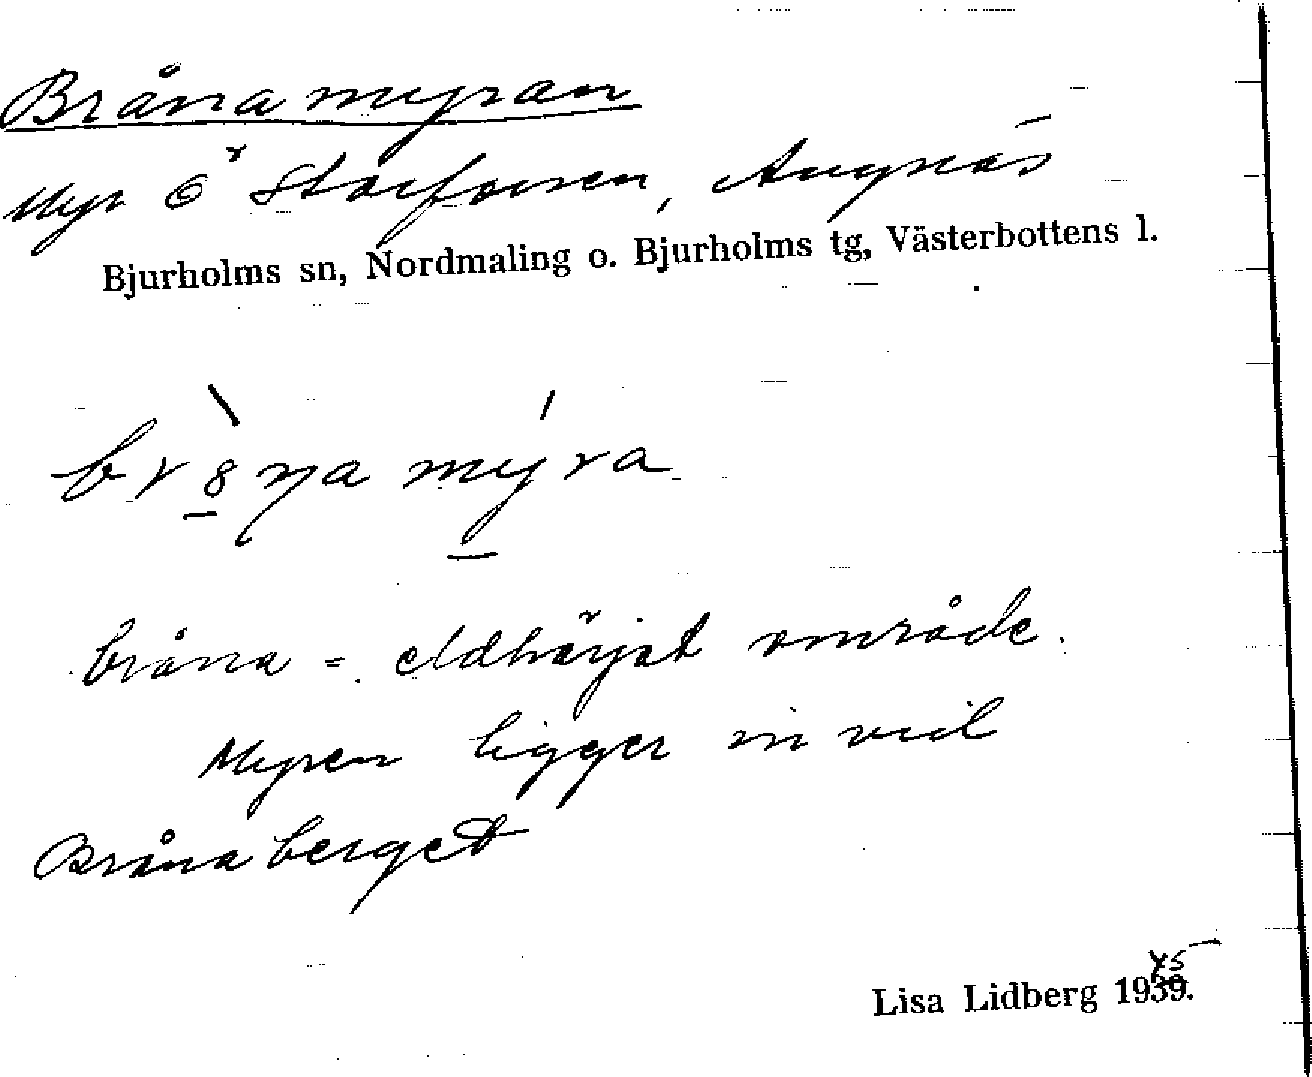 Brånamyran
Myr Ö Storforsen, Angnäs
Bjurholms sn, Nordmaling o. Bjurholms tg, Västerbottens l.
bråna = eldhärjat område.
Myren ligger invid
Brånaberget
Lisa Lidberg 1945.